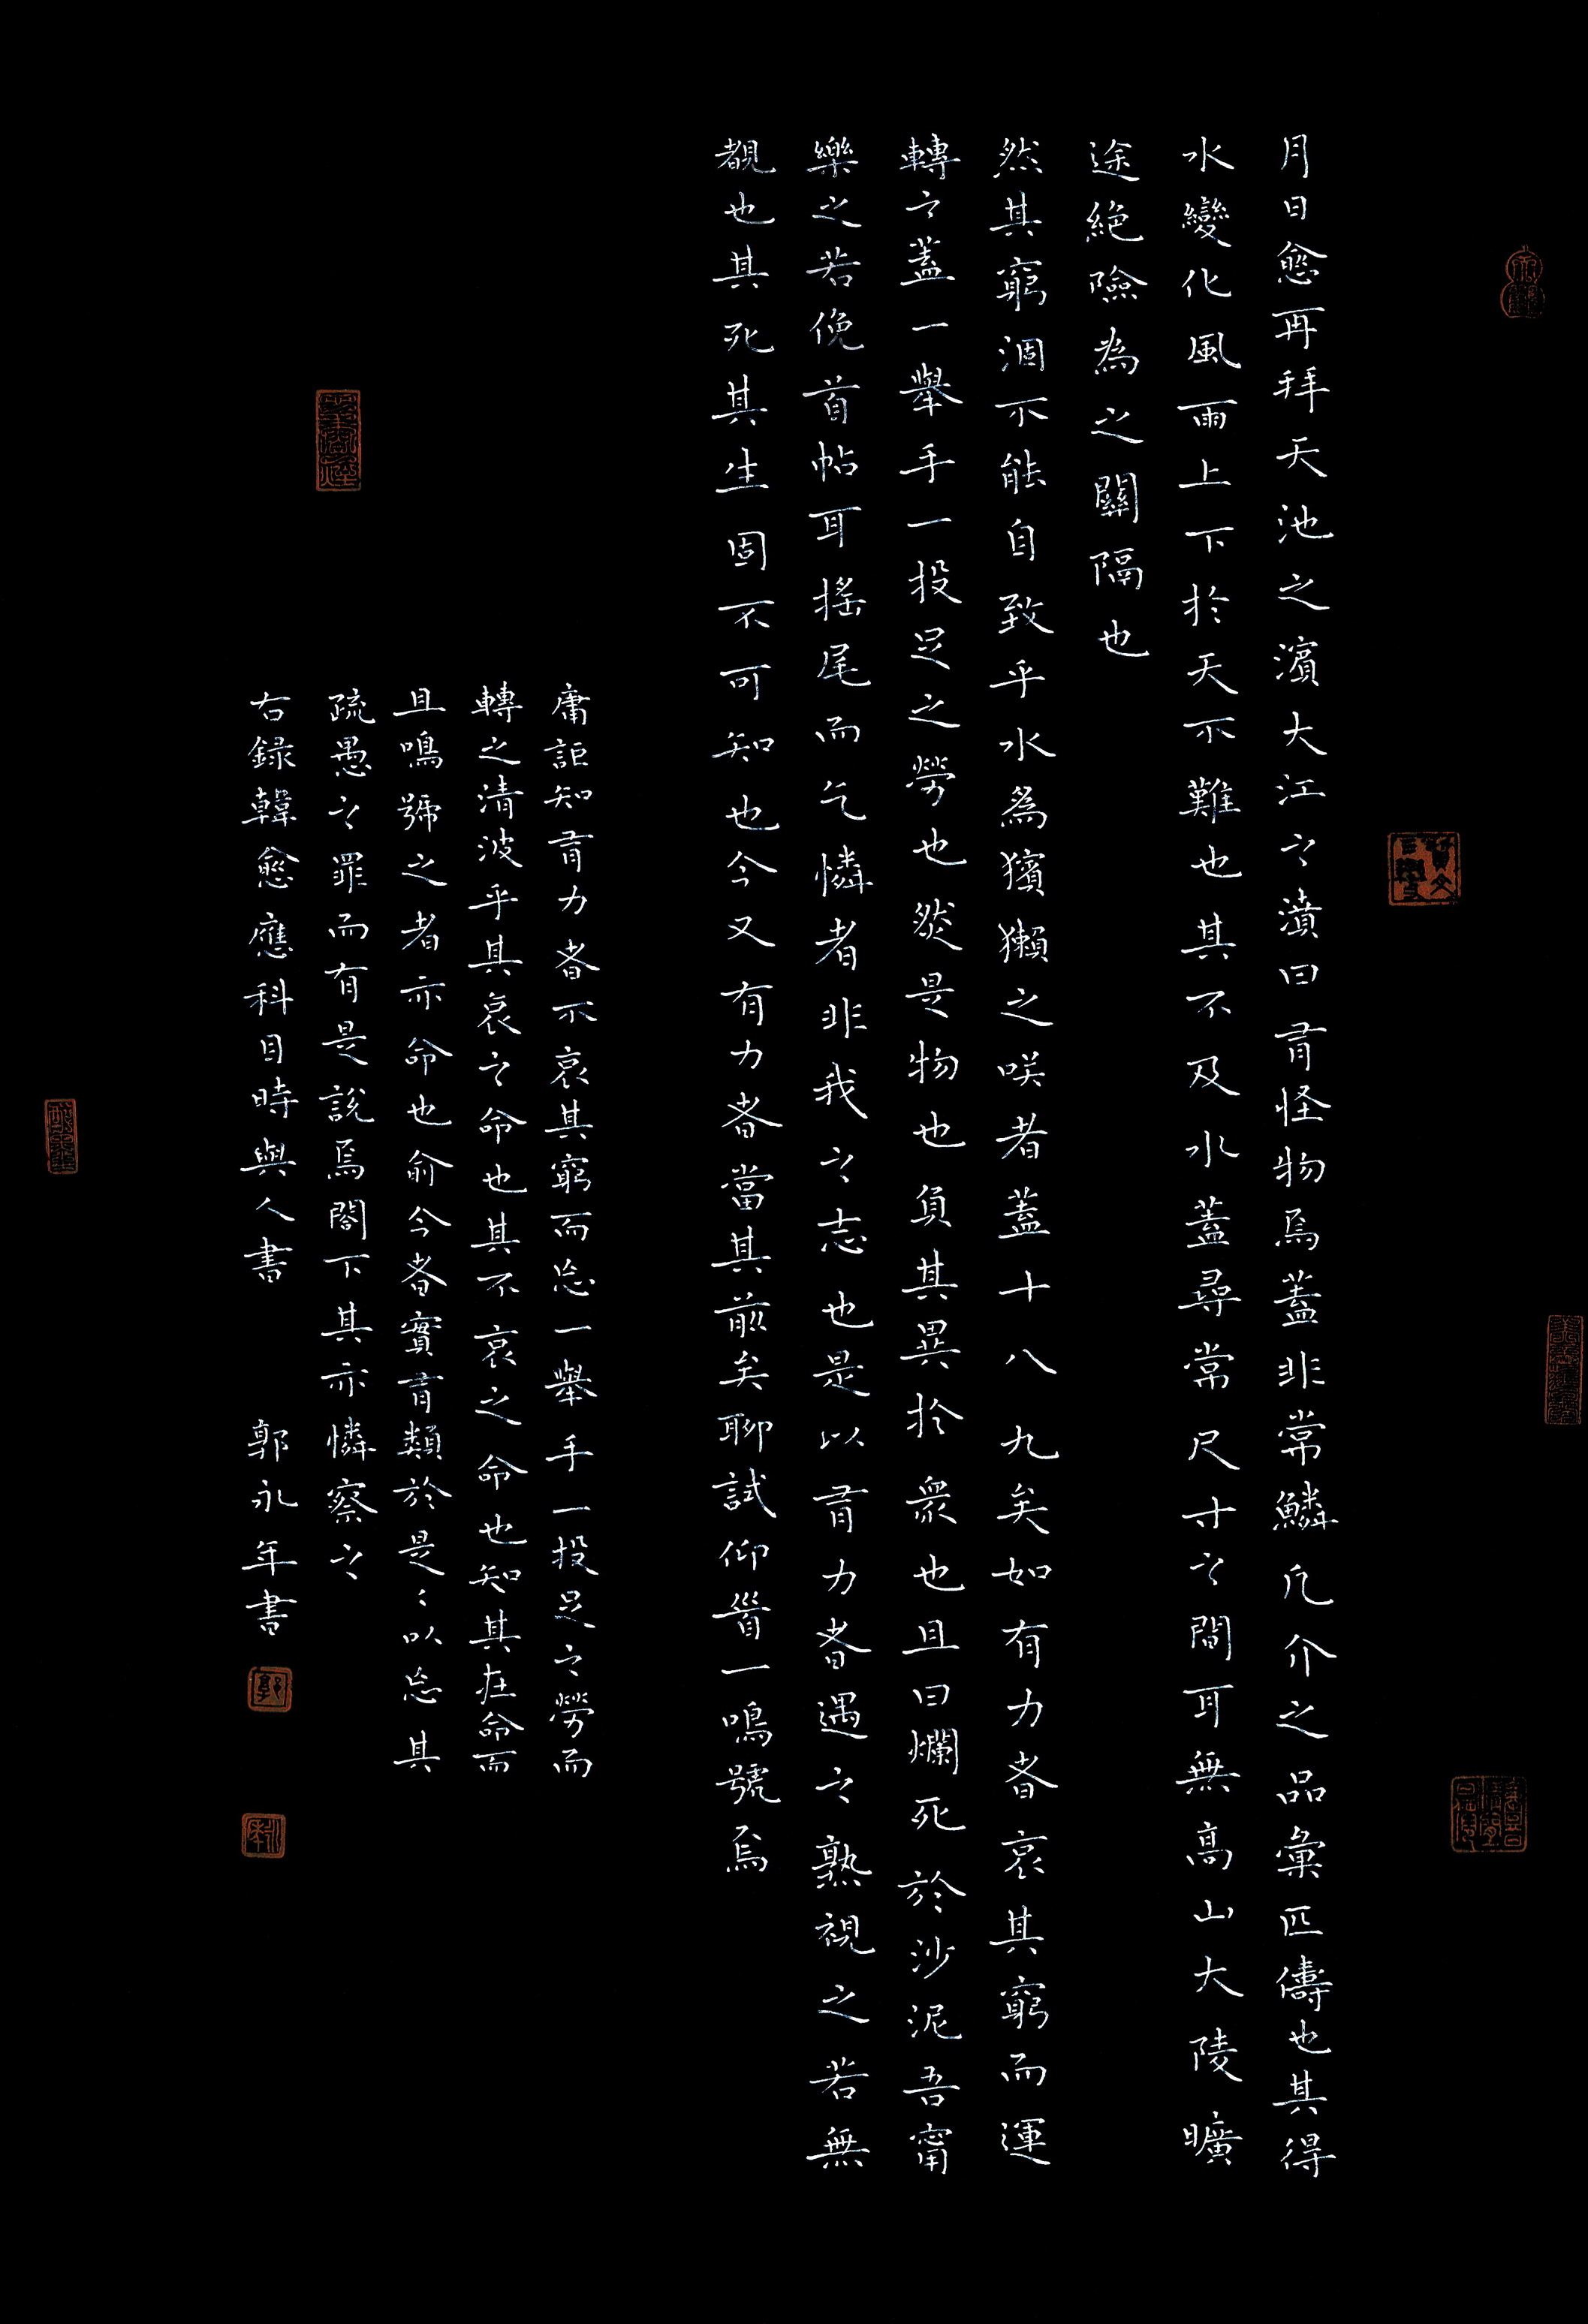 月日愈再拜天池之濱大江之濆曰有怪物焉蓋非常鱗凡介之品彙匹儔也其得
水變化風雨上下於天不難也其不及水蓋尋常尺寸之間耳無高山大陵曠
途絕險為之關隔也
然其窮涸不能自致乎水為獱獺之咲者蓋十八九矣如有力者哀其窮而運
轉之蓋一舉手一投足之勞也然是物也負其異於衆也且曰爛死於沙泥吾甯
樂之若俛首帖耳搖尾而乞憐者非我之志也是以有力者遇之熟視之若無
覩也其死其生固不可知也今又有力者當其前矣聊試仰首一鳴號焉
庸詎知有力者不哀其窮而忘一舉手一投足之勞而
轉之清波乎其哀之命也其不哀之命也知其在命而
且鳴號之者亦命也愈今者實有類於是〻以忘其
疏愚之罪而有是說焉閤下其亦憐察之
右録韓愈應科目時與人書 郭永年書
郭